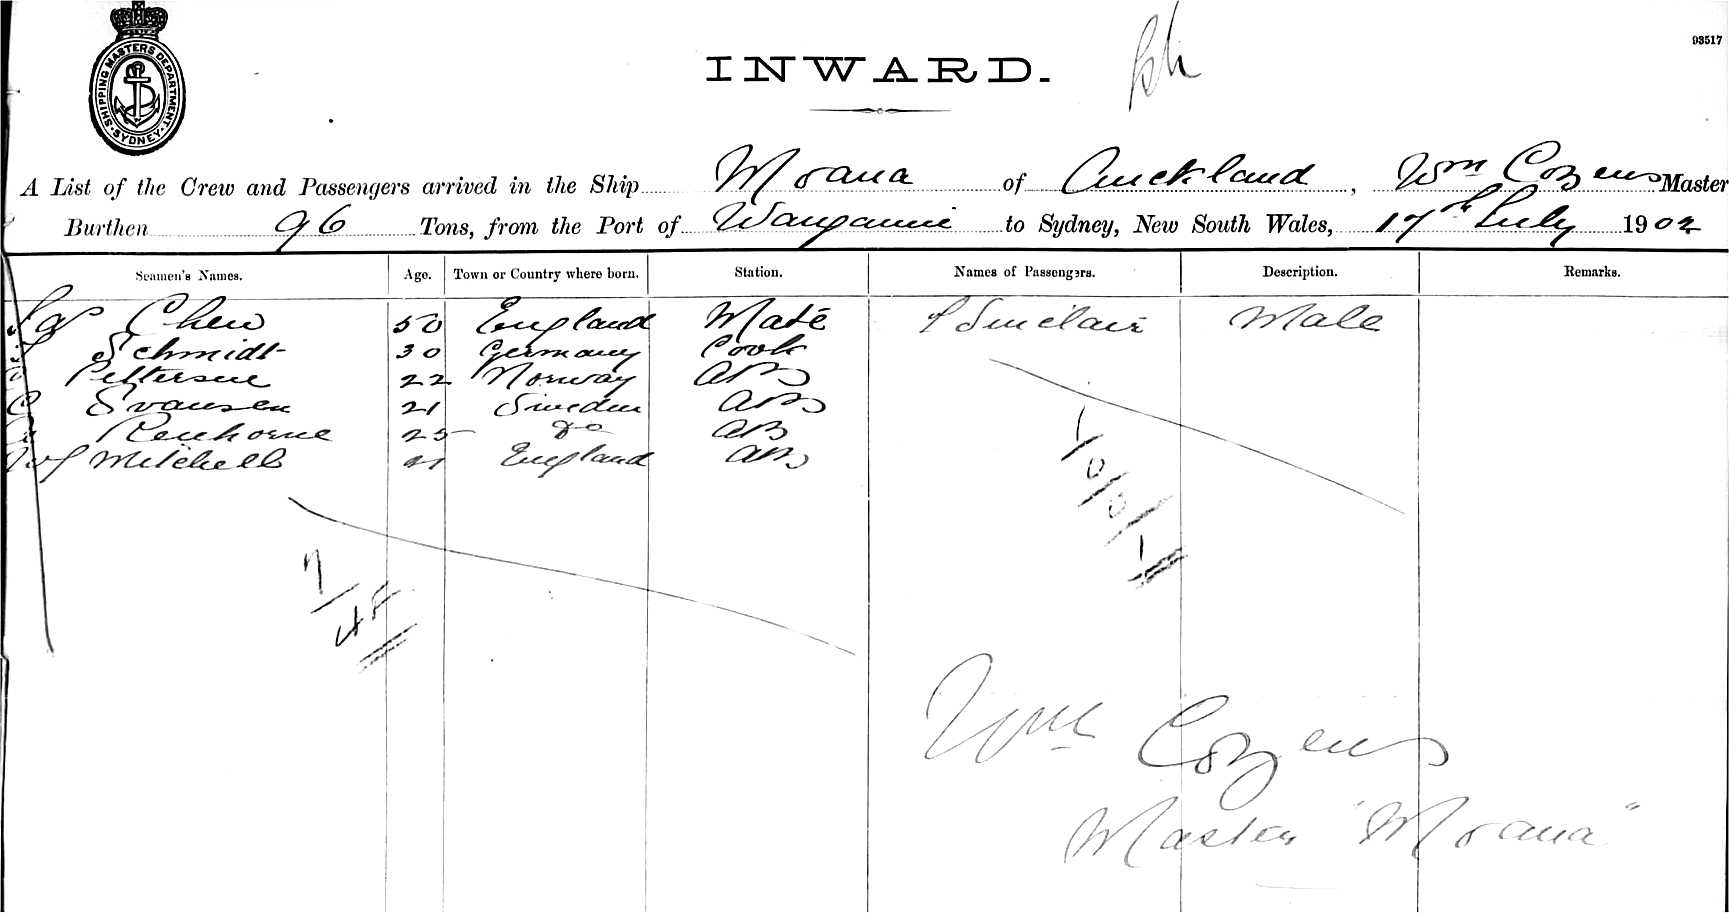 SHIPPING MASTERS DEPARTMENT. SYDNEY
93517
INWARD.
A List of the Crew and Passengers arrived in the Ship Moana of Auckland, Wm Cozens Master
Burthen 96 Tons, from the Port of Wanganui to Sydney, New South Wales, 17th July 1902
Seamen's Names. Age. Town or Country where born. Station. Names of Passengers. Description. Remarks.
Chew 50 England Mate Sinclair Male
Schmidt 30 Germany Cook
22 Norway AB
C Svansen 21 Sweden AB
25 do AB
Mitchell England AB
1/0/0/1
7
Wm Cozens
Master "Moana"